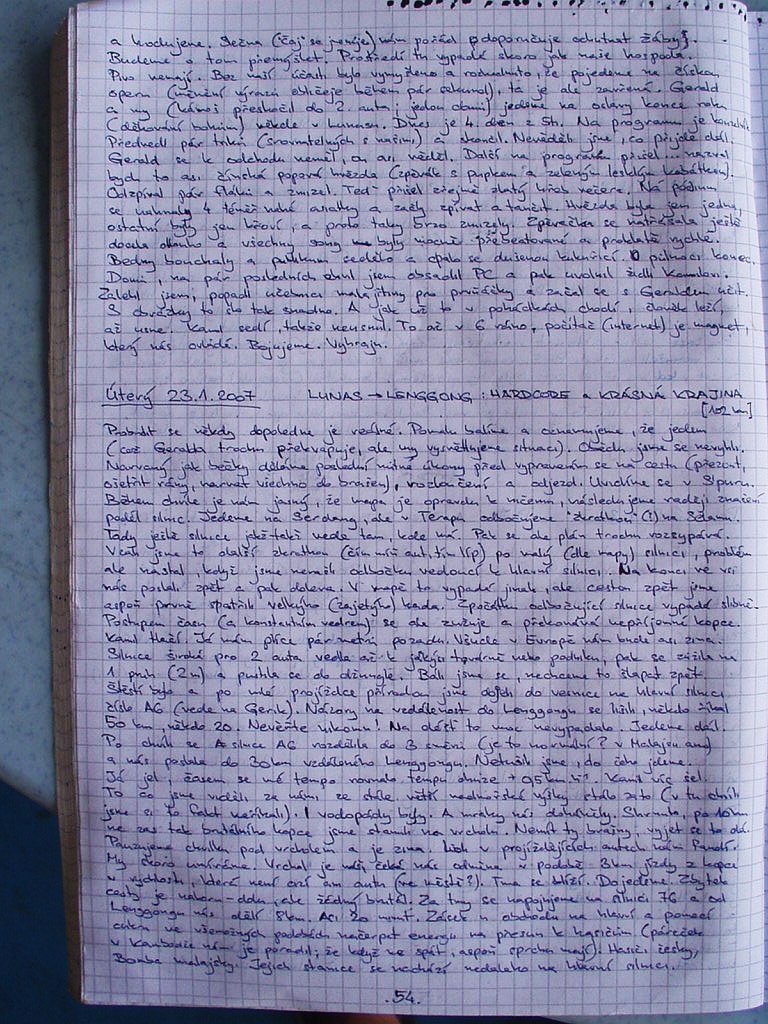 a kodujene. Sežna (čaj se jmenuje) nám pořád podporučuje ochutnat žáby.
Budeme o tom přemýšlet. Prostředí tu vypadá skoro jak naše hospoda.
Pivo nemají. Bez naší účasti bylo vymyšleno a rozhodnuto, že pojedeme na čínskou
operu (měnění výrazu obličeje během pár sekund), ta je ale zavřená. Gerald
a my (kávoši přeskočil do 2. auta; jedou obami) jedeme na oslavy konce roku
(děkování bohům) někde v Lunasu. Dnes je 4. den z 5ti. Na programu je
Předvedl pár triků (srovnatelných s našimi) a skončil. Nevěděli jsme, co přijde dál.
Gerald se k odchodu neměl, on asi věděl. Další na programu přišel... nazval
bych to asi čínská popová hvězda (zpěvák s pupkem a zeleným lesklým kabátkem).
Odzpíval pár fláků a zmizel. Teď přišel zřejmě zlatý hřeb večera. Na pódium
se nahrnuly 4 téměř nahé a začly zpívat a tančit. Hvězda byla jen jedna,
ostatní byly jen křoví, a proto taky brzo zmizely. Zpěvačka se natřásala ještě
docela dlouho a všechny songy byly mocně přebeatované a proklatě rychlé.
Bedny bouchaly a publikum sedělo a cpalo se dušenou kukuřicí. O půlnoci konec.
Domů, na pár posledních chvil jsem obsadil PC a pak uvolnil židli Kamilovi.
Zalehl jsem, popadl učebnici malajštiny pro prvňáčky a začal se s Geraldem učit.
S obrázky to šlo tak snadno. A jak už to v pohádkách chodí, člověk leží,
až usne. Kamil sedí, takže neusnul. To až v 6 ráno, počítač (internet) je magnet,
který nás ovládá. Bojujeme. Vyhraju.
Úterý 23.1.2007 LUNAS → LENGGONG : HARDCORE a KRÁSNÁ KRAJINA
[102 km]
Probudit se někdy dopoledne je reálné. Pomalu balíme a oznamujeme, že jedem
(což Geralda trochu překvapuje, ale my vysvětlujeme situaci). Obědu jsme se nevyhli.
Narvaný jak bečky děláme poslední nutné úkony před vypravením se na cestu (přezout,
ošetřit rány, narvat všechno do brašen), rozloučení a odjezd. Utvrdíme se v směru.
Během chvíle je nám jasný, že mapa je opravdu k ničemu, následujeme raději značení
podél silnic. Jedeme na Serdang, ale v Terapu odbočujeme "zkratkou" (!) na Selamu.
Tady ještě silnice jakž takž vede tam, kde má. Pak se ale plán trochu rozsypává.
Vzali jsme to další zkratkou (čím míň aut, tím líp) po malý (dle mapy) silnici, problém
ale nastal, když jsme neměli odbočku vedoucí k hlavní silnici. Na konci ve vsi
nás poslali zpět a pak doleva. V mapě to vypadá jinak, ale cestou zpět jsme
aspoň prvně spatřili velkýho (zajetýho) hada. Zpočátku odbočující silnice vypadá slibně.
Postupem času (a konstantním vedrem) se ale zužuje a překonává nepříjemné kopce.
Kamil tlačí. Já mám plíce pár metrů pozadu. Všude v Evropě nám bude asi zima.
Silnice široká pro 2 auta vedla až k jakýsi továrně nebo podniku, pak se zúžila na
1 pruh (2 m) a pustila se do džungle. Báli jsme se, nechceme to šlapat zpět.
Štěstí bylo a po milé projížďce přírodou jsme dojeli do vesnice na hlavní silnici
číslo A6 (vede na Gerik). Názory na vzdálenost do Lenggongu se liší, někdo říkal
50 km, někdo 20. Nevěřte nikomu! Na déšť to moc nevypadalo. Jedeme dál.
Po chvíli se A silnice A6 rozdělila do 3 směrů (je to normální? v Malajsii ano)
a nás poslala do 30 km vzdáleného Lenggongu. Netušili jsme, do čeho jdeme.
Já jel, časem se mé tempo rovnalo tempu chůze + 0,5 km·h⁻¹. Kamil víc šel.
To co jsme viděli za námi ze stále větší nadmořské výšky stálo zato (v tu chvíli
jsme si to fakt neříkali). I vodopády byly. A mraky nás doháněly. Shrnuto, po 10 km
ne zas tak brutálního kopce jsme stanuli na vrcholu. Nemít ty brašny, vyjet se to dá.
Pauzujeme chvilku pod vrcholem a je zima. Lidi v projíždějících autech nám fandí.
My skoro umíráme. Vrchol je náš, čeká nás odměna v podobě 8 km jízdy z kopce
v rychlosti, která není ani am autu (ve městě?). Tma se blíží. Dojedeme. Zbytek
cesty je nahoru-dolu, ale žádný brutál. Za tmy se napojujeme na silnici 76 a od
Lenggongu nás dělí 8 km. Asi 20 minut. Zásek u obchodu na hlavní a pomocí
cukru ve všemožných podobách načerpat energii na přesun k hasičům (páreček
v Kambodži nám je poradil; že když ne spát, aspoň sprchu mají). Hasiči česky,
Bomba malajsky. Jejich stanice se nachází nedaleko na hlavní silnici.
. 54 .